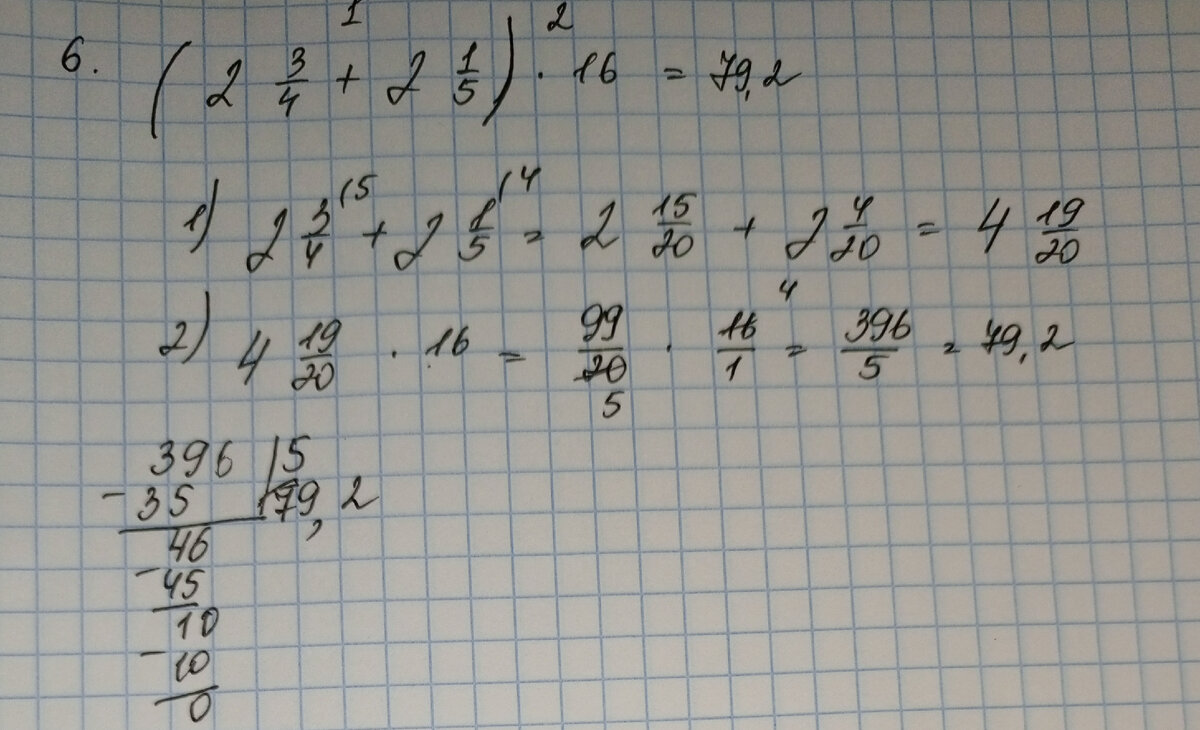 1 2
6. (2 3/4 + 2 1/5) · 16 = 79,2
1) 2 3/4 (5 + 2 1/5 (4 = 2 15/20 + 2 4/20 = 4 19/20
4
2) 4 19/20 · 16 = 99/20 · 16/1 = 396/5 = 79,2
5
396 | 5
- 35 | 79,2
46
- 45
10
- 10
0